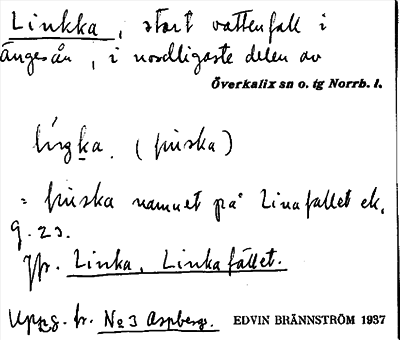 Linkka, stort vattenfall i
Ängesån, i nordligaste delen av
Överkalix sn o. tg Norrb. l.
lı́ŋka. (finska)
= finska namnet på Linafallet ek.
9.23.
Jfr. Linka, Linkafallet.
Uppg. fr. No 3 Aspberg.
EDVIN BRÄNNSTRÖM 1937